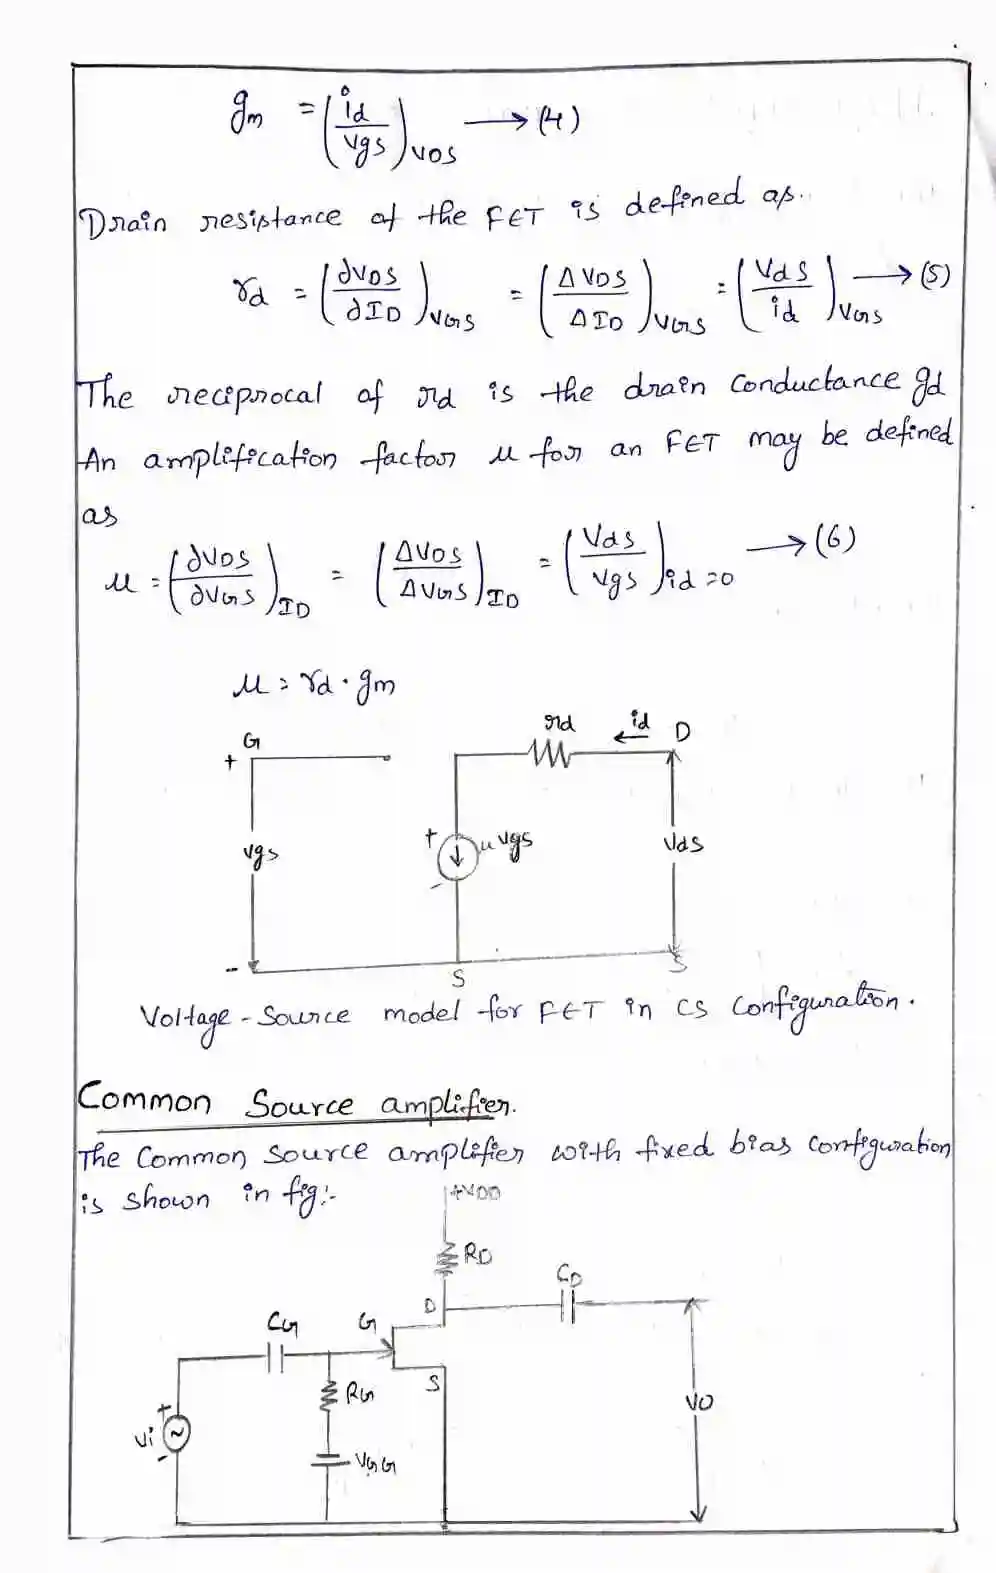 gm = (id / vgs)VDS → (4)
Drain resistance of the FET is defined as.
rd = (∂VDS / ∂ID)VGS = (ΔVDS / ΔID)VGS = (Vds / id)VGS → (5)
The reciprocal of rd is the drain conductance gd
An amplification factor u for an FET may be defined
as
u = (∂VDS / ∂VGS)ID = (ΔVDS / ΔVGS)ID = (Vds / vgs)id=0 → (6)
u = rd . gm
rd id D
G
+
vgs
+ u vgs
-
Vds
-
S S
Voltage - Source model for FET in CS Configuration.
Common Source amplifier.
The Common Source amplifier with fixed bias configuration
is shown in fig:-
+VDD
RD
CD
D
CG G
S
RG
+
vi
-
VGG
VO